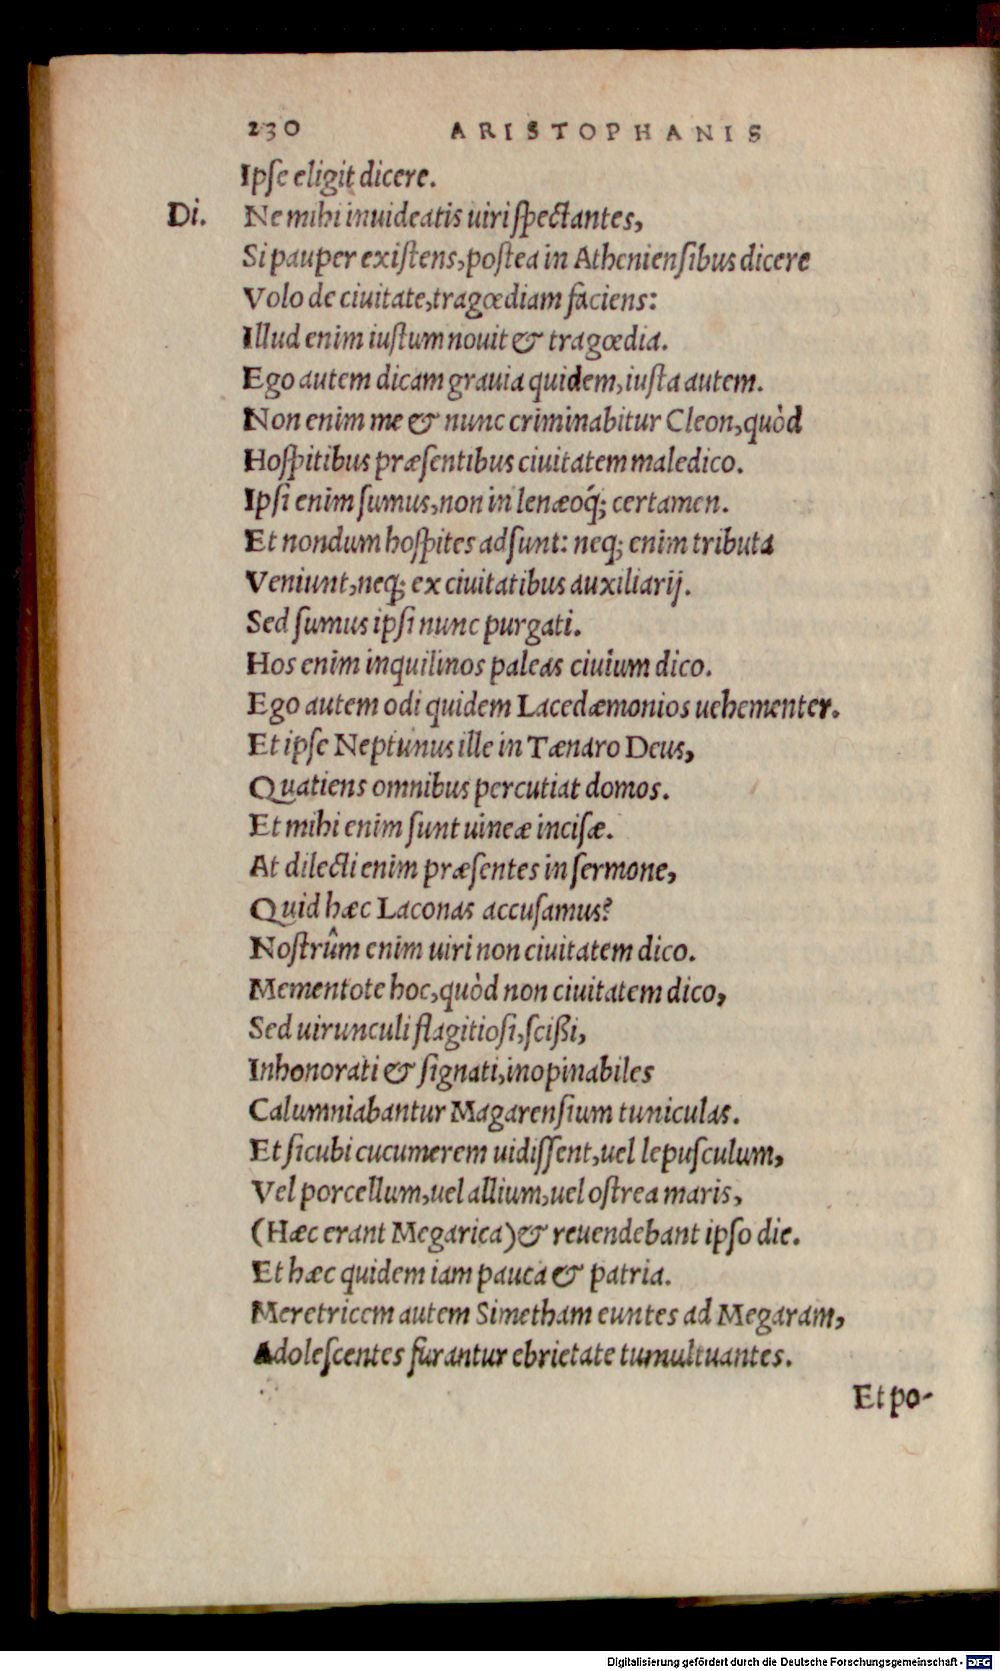 230 ARISTOPHANIS
Ipſe eligit dicere.
Di. Ne mihi inuideatis uiri ſpectantes,
Si pauper exiſtens, poſtea in Athenienſibus dicere
Volo de ciuitate, tragœdiam faciens:
Illud enim iuſtum nouit & tragœdia.
Ego autem dicam grauia quidem, iuſta autem.
Non enim me & nunc criminabitur Cleon, quòd
Hoſpitibus præſentibus ciuitatem maledico.
Ipſi enim ſumus, non in lenæoq́; certamen.
Et nondum hoſpites adſunt: neq; enim tributa
Veniunt, neq; ex ciuitatibus auxiliarij.
Sed ſumus ipſi nunc purgati.
Hos enim inquilinos paleas ciuium dico.
Ego autem odi quidem Lacedæmonios uehementer.
Et ipſe Neptunus ille in Tænaro Deus,
Quatiens omnibus percutiat domos.
Et mihi enim ſunt uineæ inciſæ.
At dilecti enim præſentes in ſermone,
Quid hæc Laconas accuſamus?
Noſtrûm enim uiri non ciuitatem dico.
Mementote hoc, quòd non ciuitatem dico,
Sed uirunculi flagitioſi, ſcißi,
Inhonorati & ſignati, inopinabiles
Calumniabantur Magarenſium tuniculas.
Et ſicubi cucumerem uidiſſent, uel lepuſculum,
Vel porcellum, uel allium, uel oſtrea maris,
(Hæc erant Megarica) & reuendebant ipſo die.
Et hæc quidem iam pauca & patria.
Meretricem autem Simetham euntes ad Megaram,
Adoleſcentes furantur ebrietate tumultuantes.
Et po-
Digitalisierung gefördert durch die Deutsche Forschungsgemeinschaft - DFG